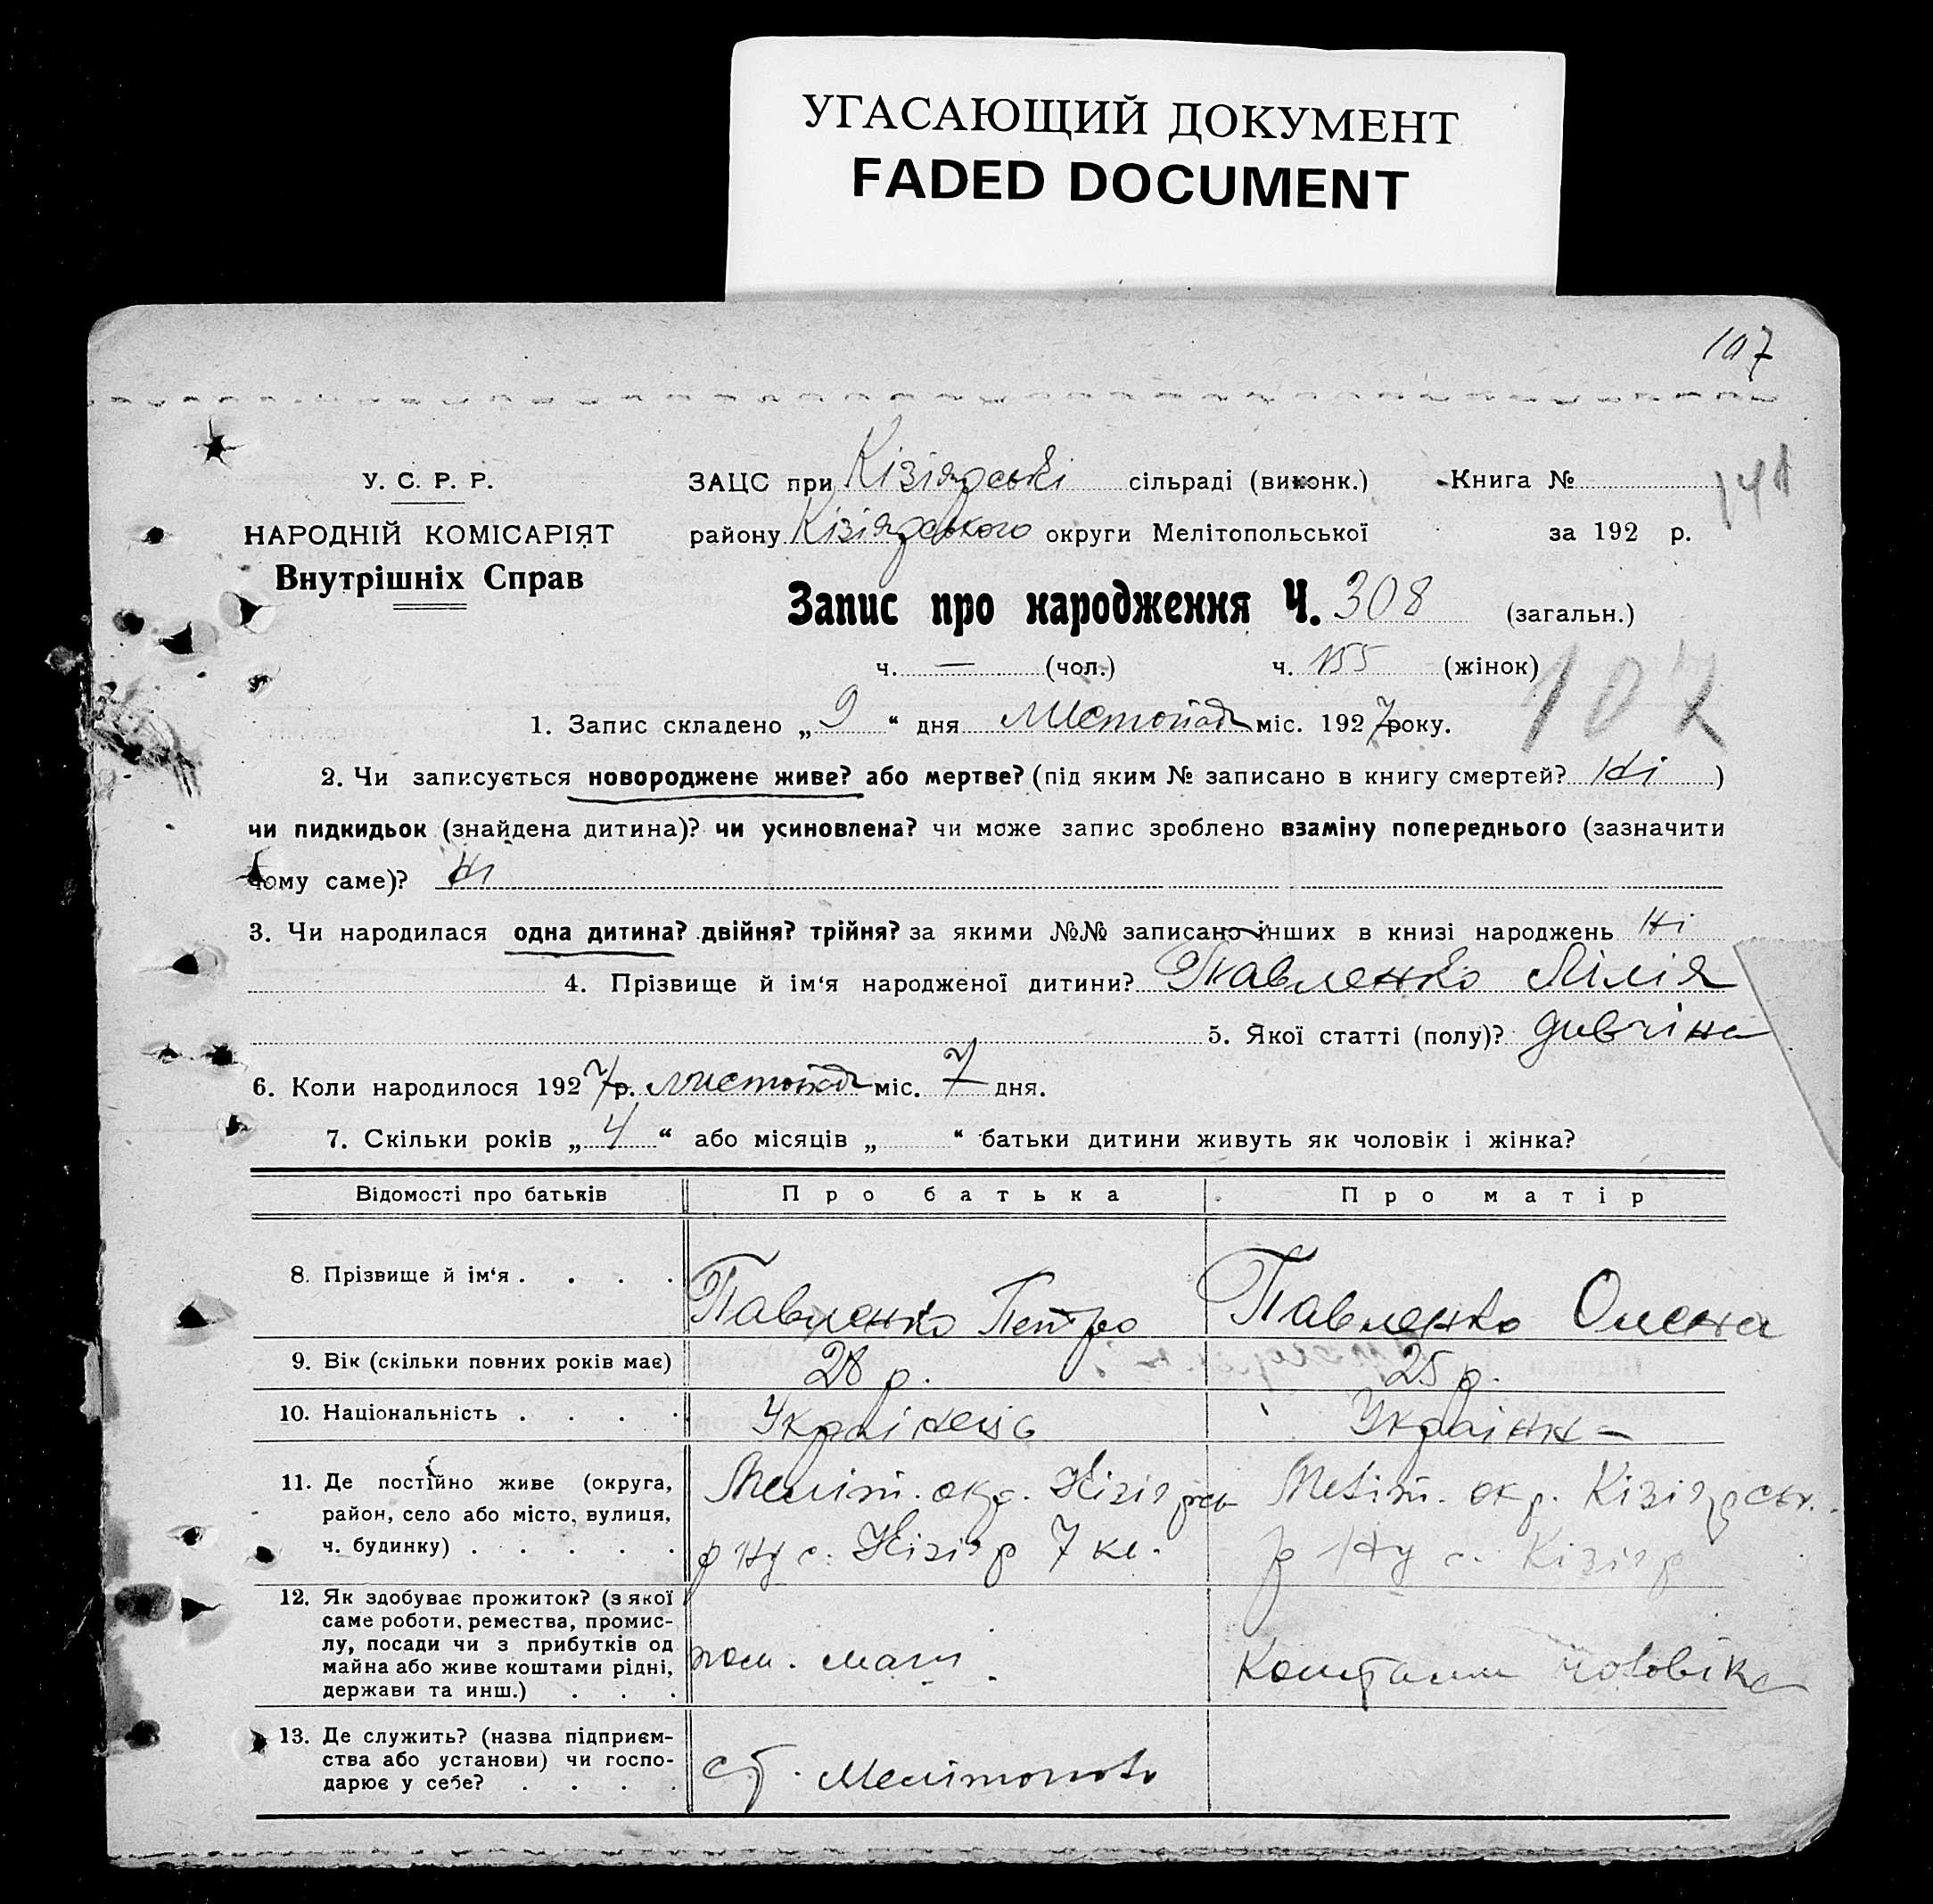 УГАСАЮЩИЙ ДОКУМЕНТ
FADED DOCUMENT
107
У. С. Р. Р.
ЗАЦС при Кізіярські сільраді (виконк.) Книга №
141
НАРОДНІЙ КОМІСАРІЯТ
Внутрішніх Справ
району Кізіярського округи Мелітопольської за 192 р.
Запис про народження Ч. 308 (загальн.)
ч. — (чол.) ч. 155 (жінок)
107
1. Запис складено „ 9 “ дня листопад міс. 1927 року.
2. Чи записується новороджене живе? або мертве? (під яким № записано в книгу смертей? Ні )
чи пидкидьок (знайдена дитина)? чи усиновлена? чи може запис зроблено взаміну попереднього (зазначити
чому саме)? Ні
3. Чи народилася одна дитина? двійня? трійня? за якими №№ записано інших в книзі народжень Ні
4. Прізвище й ім‘я народженої дитини? Павленко Лілія
5. Якої статті (полу)? дивчіна
6. Коли народилося 1927 р. листопад міс. 7 дня.
7. Скільки років „ 4 “ або місяців „ “ батьки дитини живуть як чоловік і жінка?
Відомості про батьків Про батька Про матір
8. Прізвище й ім‘я . . . . Павленко Петро Павленко Олена
9. Вік (скільки повних років має) 28 р. 25 р.
10. Національність . . . . Українець Українк-
11. Де постійно живе (округа,
район, село або місто, вулиця,
ч. будинку) . . . . .
Меліт. окр. Кізіярсь
р ну с. Кізіяр 7 кв.
Меліт. окр. Кізіярськ.
р-ну с. Кізіяр
12. Як здобуває прожиток? (з якої
саме роботи, ремества, промис-
лу, посади чи з прибутків од
майна або живе коштами рідні,
держави та инш.) . . .
пом. маш.
Коштами чоловіка
13. Де служить? (назва підприєм-
ства або установи) чи госпо-
дарює у себе? . . . .
ст. Мелітополь